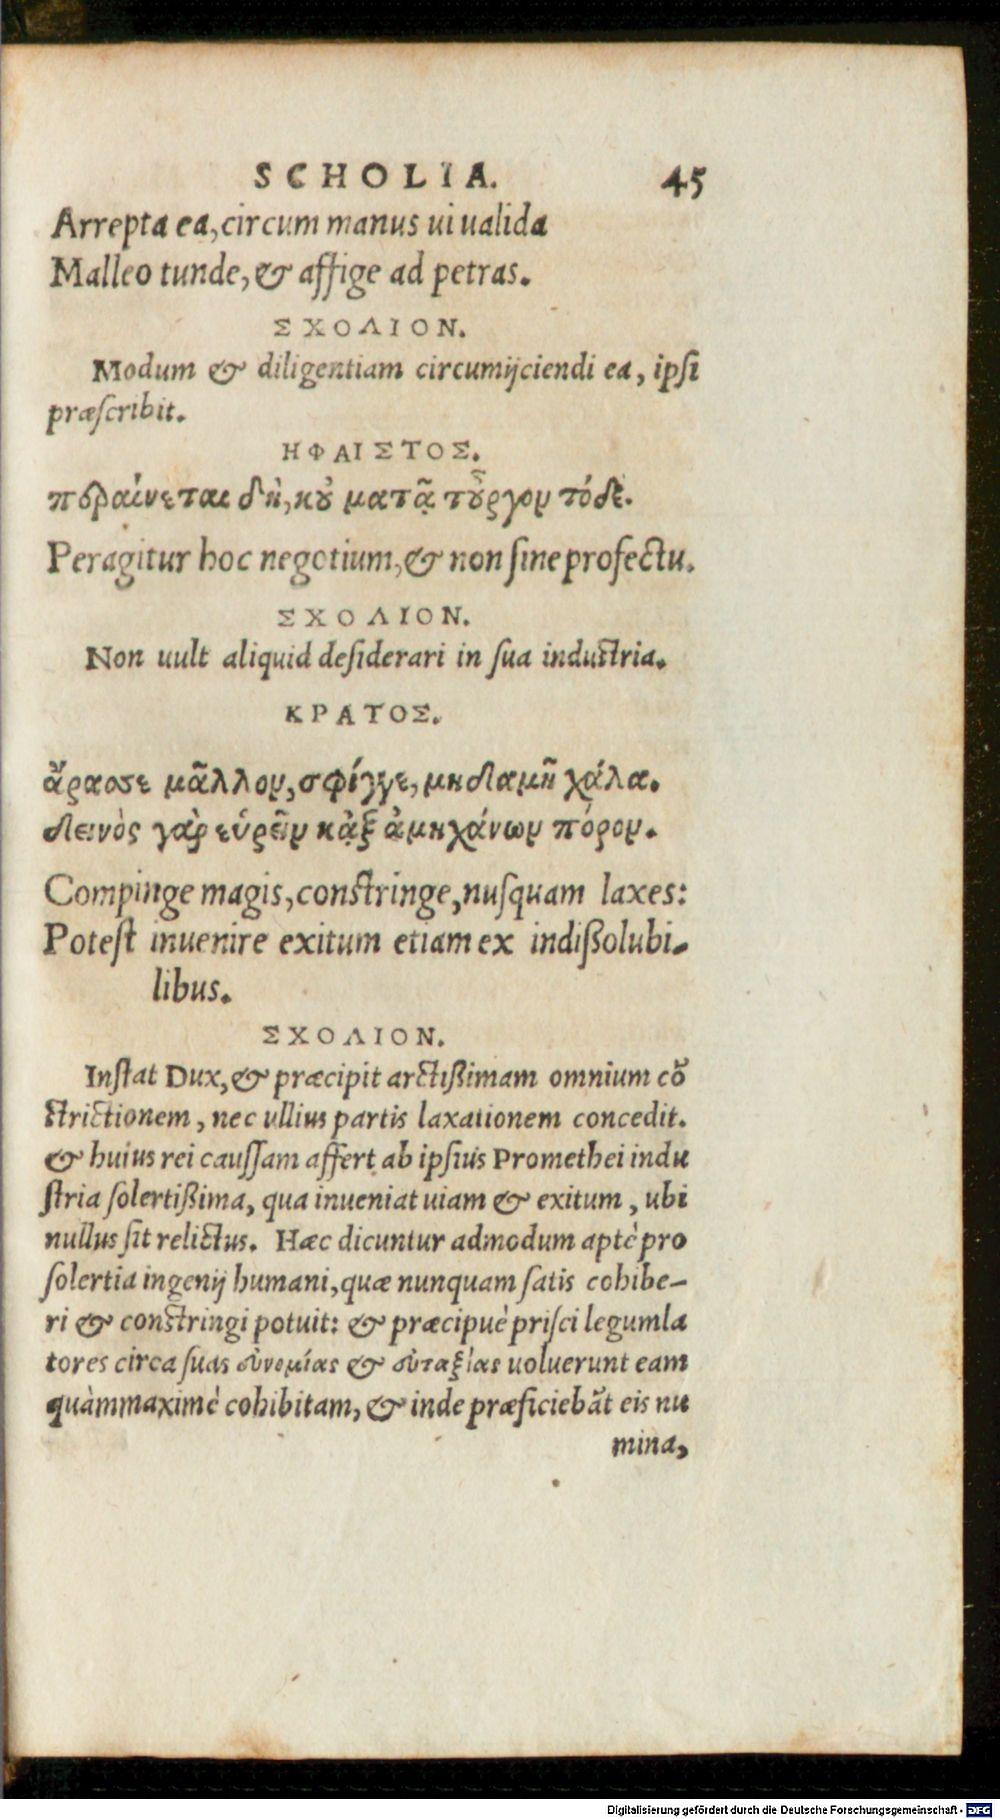 SCHOLIA. 45
Arrepta ea, circum manus ui ualida
Malleo tunde, & affige ad petras.
ΣΧΟΛΙΟΝ.
Modum & diligentiam circumijciendi ea, ipsi
præscribit.
ΗΦΑΙΣΤΟΣ.
περαίνεται δὴ, κοὐ ματᾷ τοὖργον τόδε.
Peragitur hoc negotium, & non sine profectu.
ΣΧΟΛΙΟΝ.
Non uult aliquid desiderari in sua industria.
ΚΡΑΤΟΣ.
ἄρασσε μᾶλλον, σφίγγε, μηδαμῆ χάλα.
δεινὸς γὰρ εὑρεῖν κᾀξ ἀμηχάνων πόρον.
Compinge magis, constringe, nusquam laxes:
Potest inuenire exitum etiam ex indißolubi-
libus.
ΣΧΟΛΙΟΝ.
Instat Dux, & præcipit arctißimam omnium cõ
strictionem, nec ullius partis laxationem concedit.
& huius rei caussam affert ab ipsius Promethei indu
stria solertißima, qua inueniat uiam & exitum, ubi
nullus sit relictus. Hæc dicuntur admodum aptè pro
solertia ingenij humani, quæ nunquam satis cohibe-
ri & constringi potuit: & præcipuè prisci legumla
tores circa suas σὐνομίας & σὐταξίας uoluerunt eam
quàmmaximè cohibitam, & inde præficiebãt eis nu
mina,
Digitalisierung gefördert durch die Deutsche Forschungsgemeinschaft - DFG